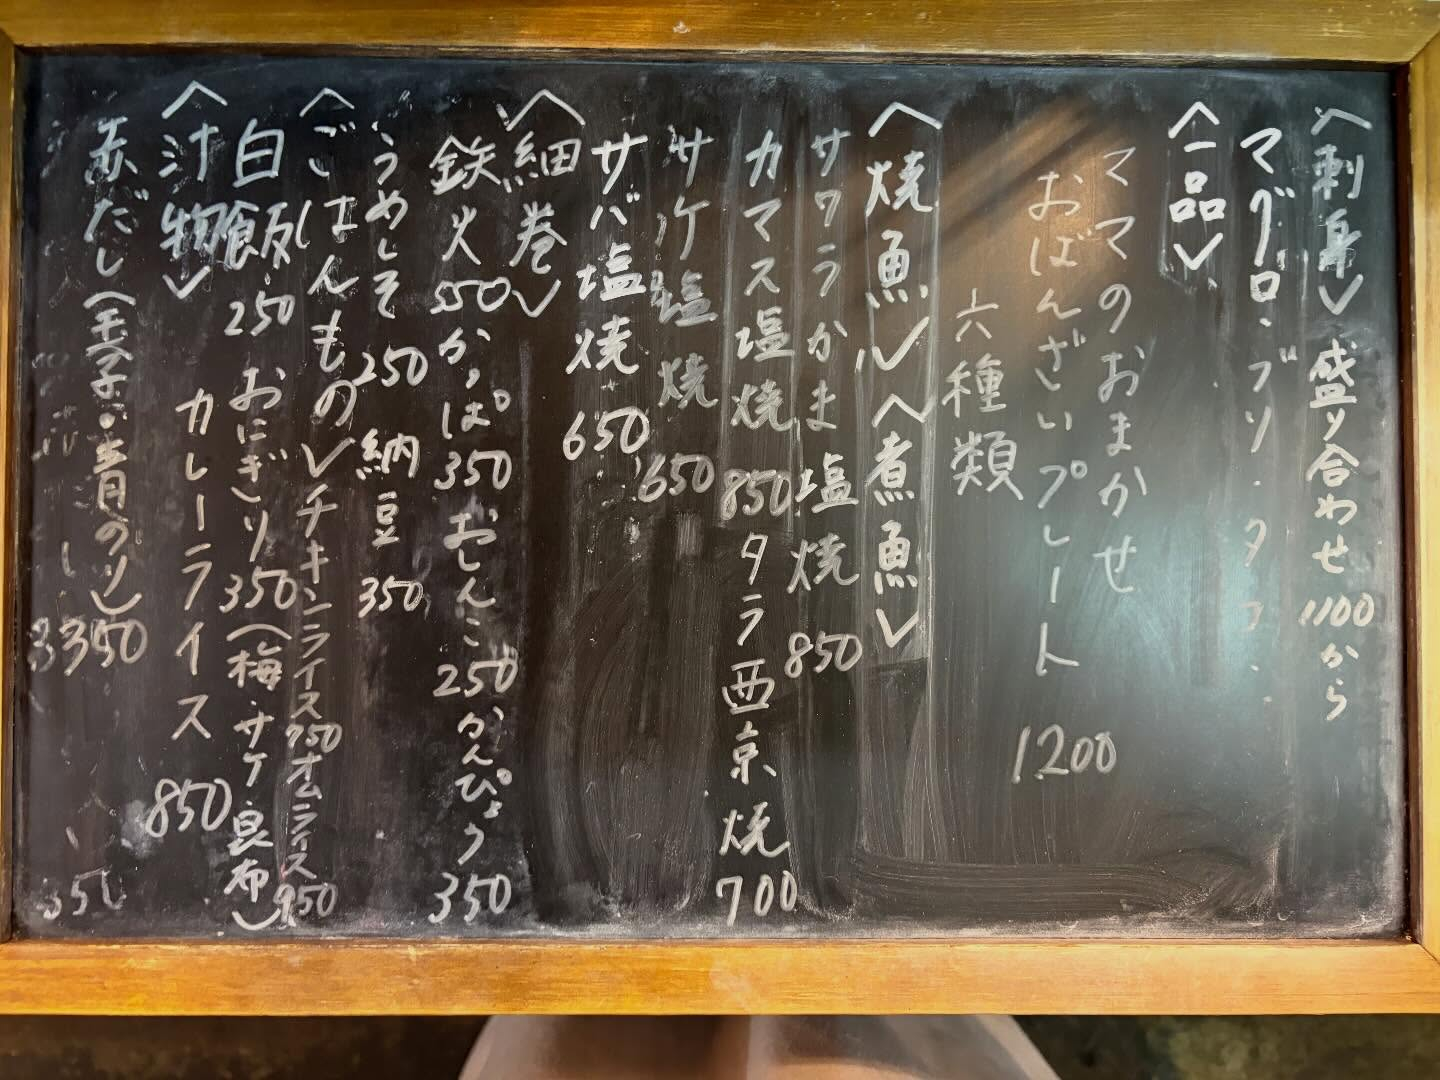 〈刺身〉盛り合わせ 1100から
マグロ・ブリ・タコ・
〈一品〉
ママのおまかせ
おばんざいプレート 1200
六種類
〈焼魚〉〈煮魚〉
サワラかま塩焼 850
カマス塩焼 850 タラ西京焼 700
サケ塩焼 650
サバ塩焼 650
〈細巻〉
鉄火 550 かっぱ 350 おしんこ 250 かんぴょう 350
うめしそ 250 納豆 350
〈ごはんもの〉チキンライス 750 オムライス 950
白飯 250 おにぎり 350（梅・サケ・昆布）
カレーライス 850
〈汁物〉
赤だし（玉子・青のり）350